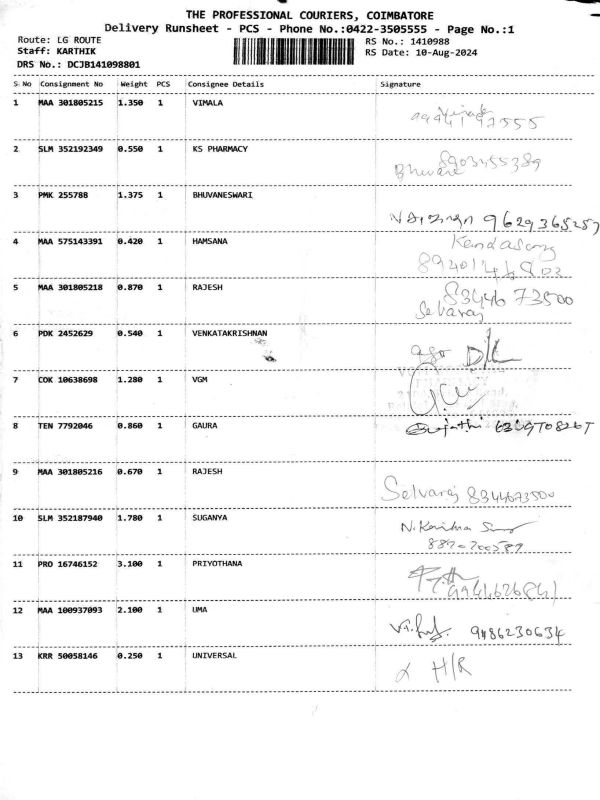 THE PROFESSIONAL COURIERS, COIMBATORE
Delivery Runsheet - PCS - Phone No.:0422-3505555 - Page No.:1
Route: LG ROUTE RS No.: 1410988
Staff: KARTHIK RS Date: 10-Aug-2024
DRS No.: DCJB141098801
S No Consignment No Weight PCS Consignee Details Signature
1 MAA 301805215 1.350 1 VIMALA
2 SLM 352192349 0.550 1 KS PHARMACY 8903455389
Bhuvane
3 PMK 255788 1.375 1 BHUVANESWARI
9629365257
4 MAA 575143391 0.420 1 HAMSANA
5 MAA 301805218 0.870 1 RAJESH 8344673500
Selvaraj
6 PDK 2452629 0.540 1 VENKATAKRISHNAN
7 COK 10638698 1.280 1 VGM
8 TEN 7792046 0.860 1 GAURA
9 MAA 301805216 0.670 1 RAJESH
Selvaraj 8344673500
10 SLM 352187940 1.780 1 SUGANYA
11 PRO 16746152 3.100 1 PRIYOTHANA
12 MAA 100937093 2.100 1 UMA
9486230634
13 KRR 50058146 0.250 1 UNIVERSAL
H/R